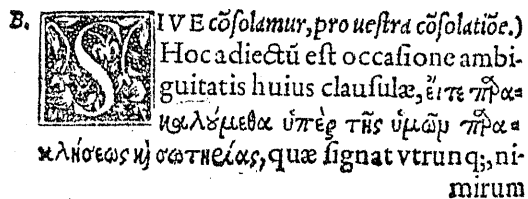 B. SIVE cõſolamur, pro ueſtra cõſolatiõe.)
Hoc adiectũ eſt occaſione ambi-
guitatis huius clauſulæ, εἴτε πρα-
καλούμεθα ὑπὲρ τῆς ὑμῶν πρα-
κλήσεως κὶ σωτηρίας, quæ ſignat vtrunq;, ni-
mirum